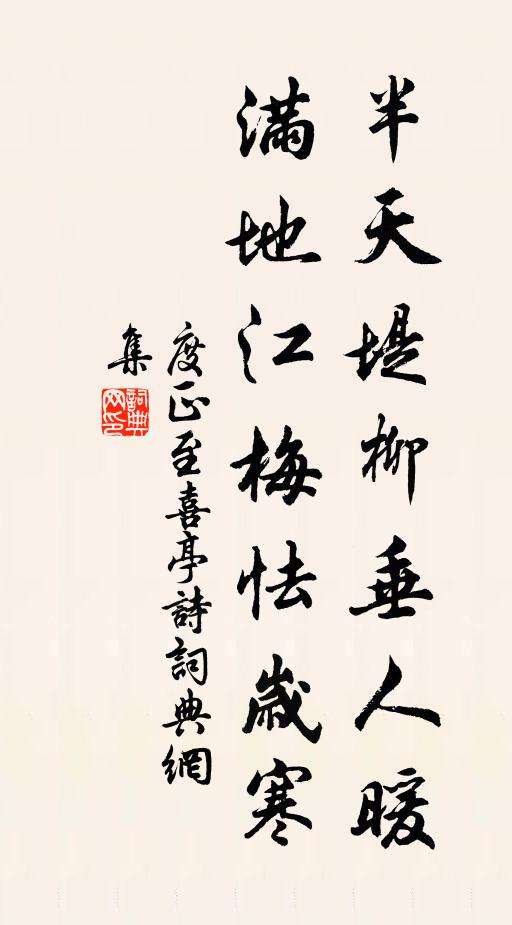 半天堤柳垂人暖
滿地江梅怯歲寒
度正至喜亭詩詞典網
集
詞典
网印